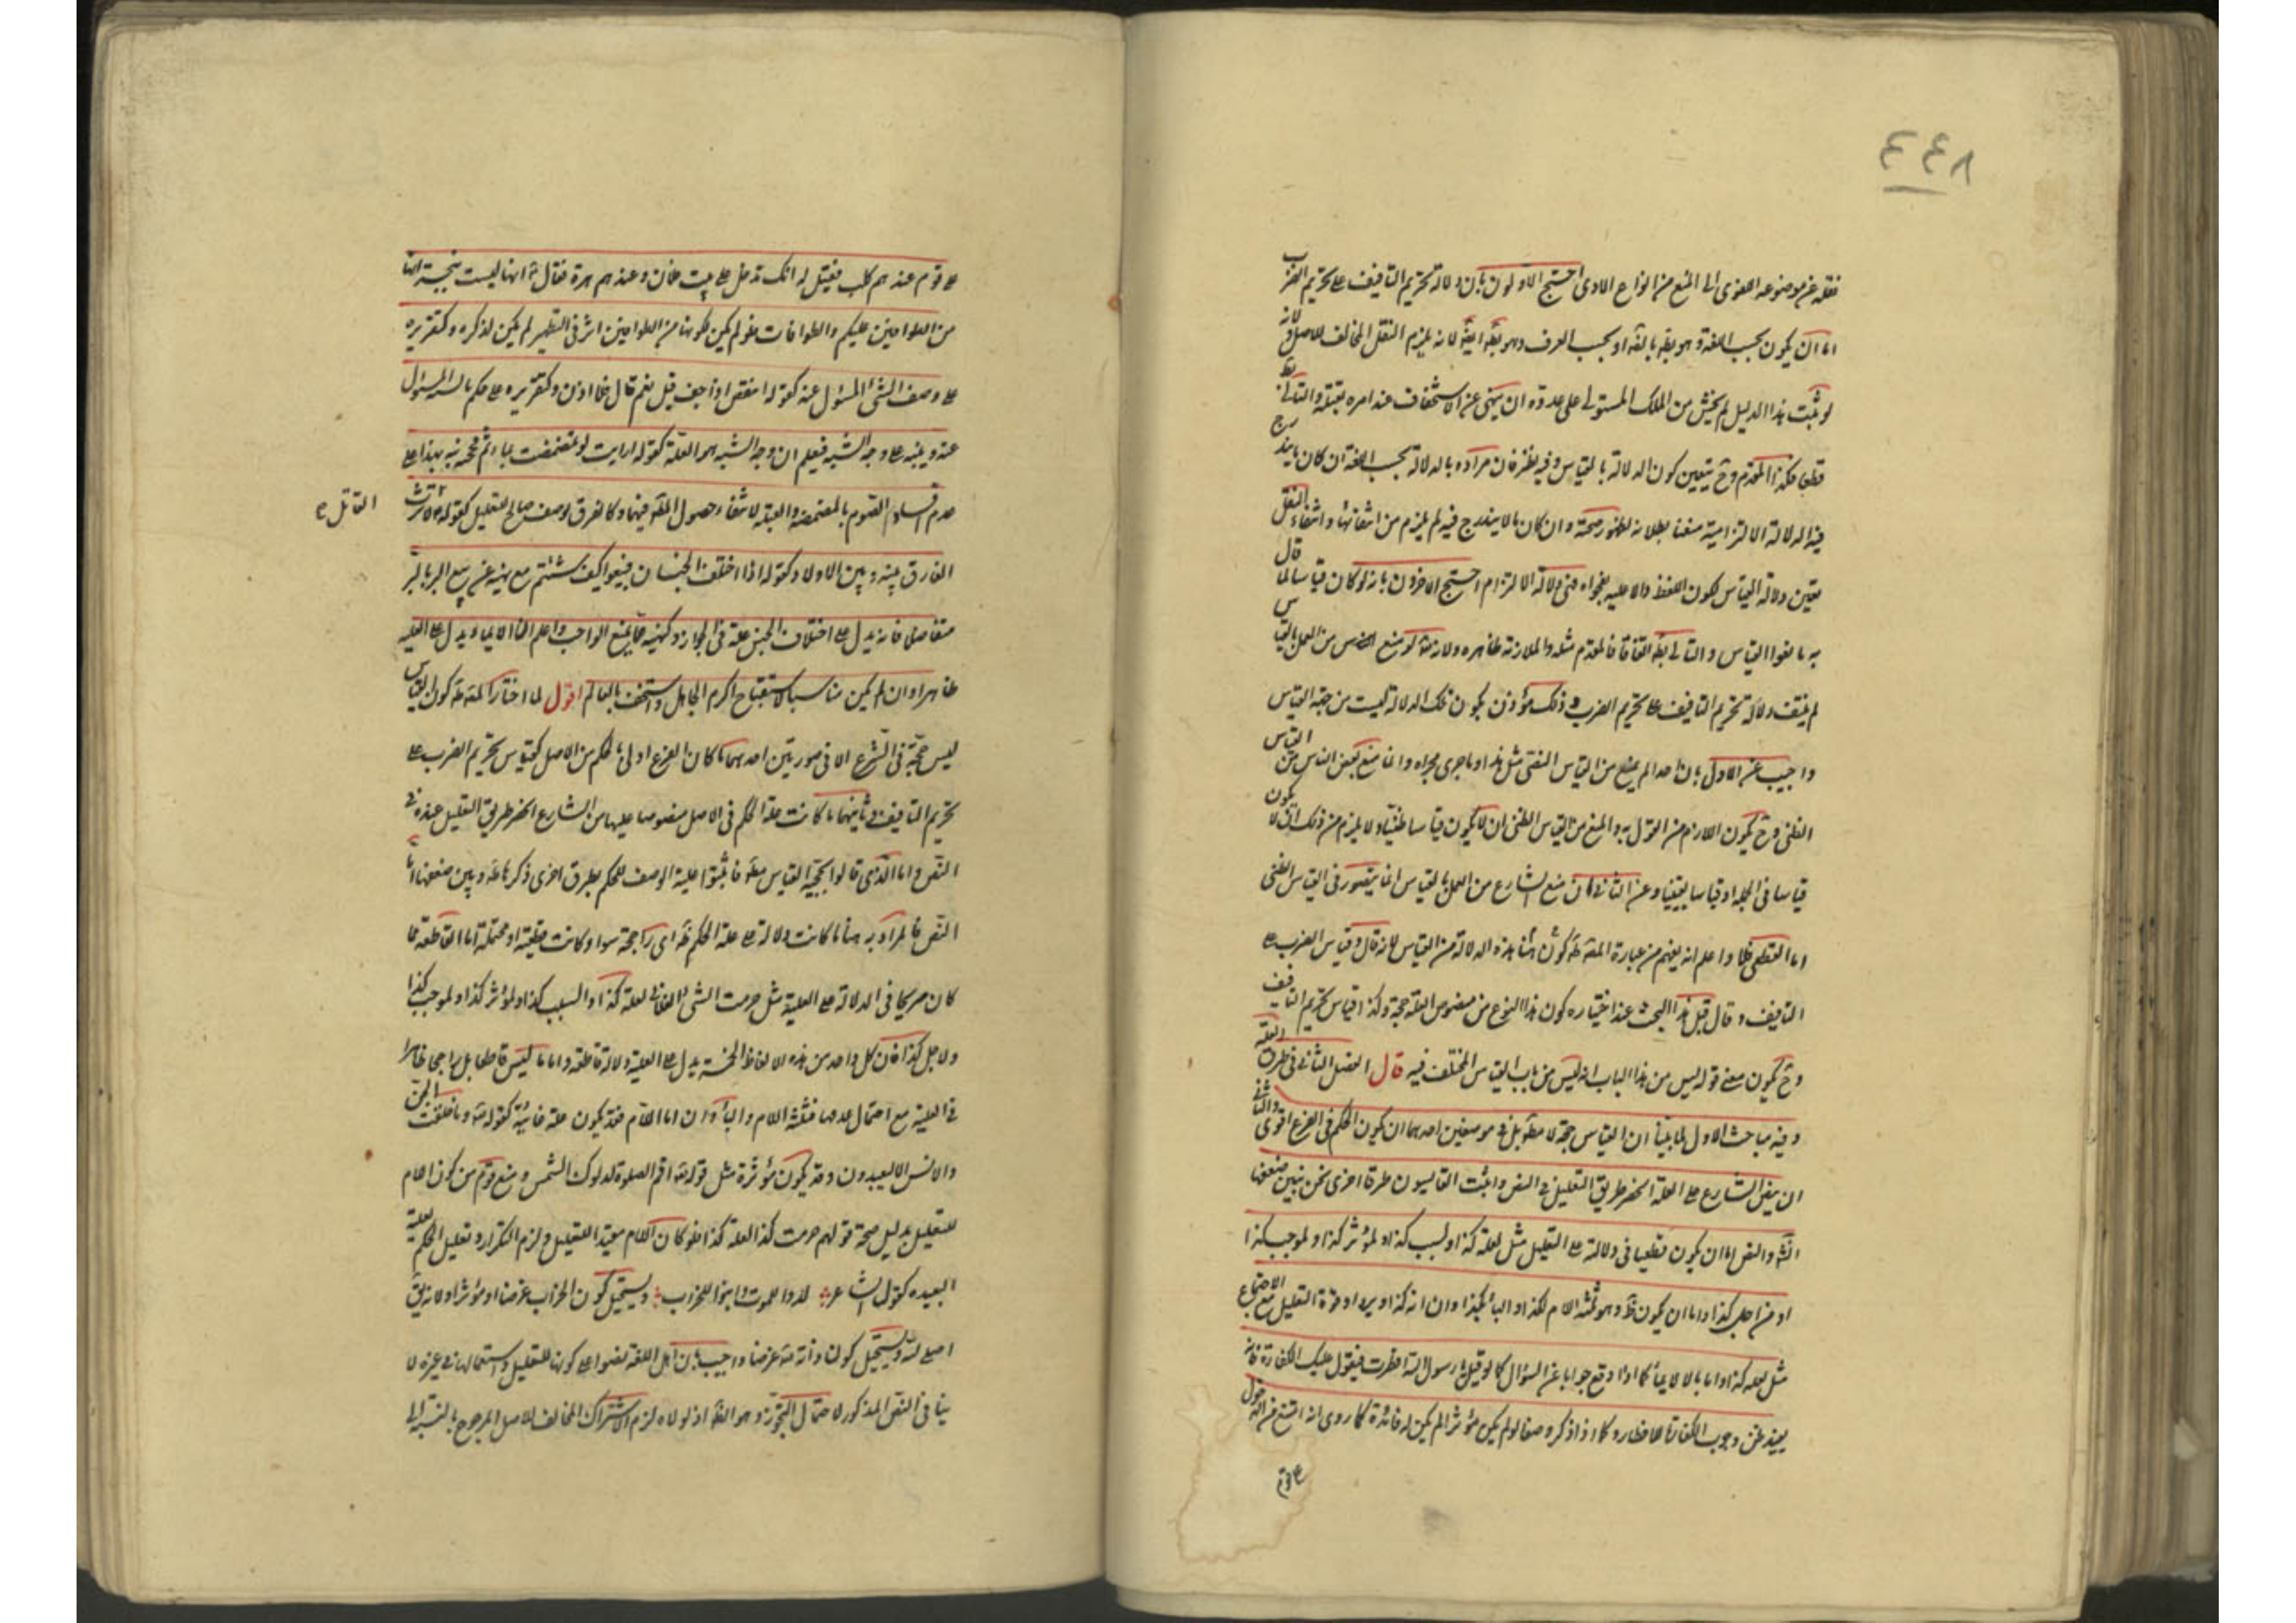 ٤٤٨
نقله عن موضوعه اللغوى الى المنع من انواع الاذى احتج الاولون بان دلالة تحريم التافيف على تحريم الضرب
اما ان يكون بحسب اللغة وهو بط بالضرورة او بحسب العرف وهو بط ايضا لانه يلزم النقل المخالف للاصل ولانه
لو ثبت هذا الدليل لم يحسن من الملك المستولى على عدوه ان ينهى عن الاستخفاف عند امره بقتله والتالى بط
قطعا فكذا المقدم وح يتعين كون الدلالة بالقياس وفيه نظر فان مراده بالدلالة بحسب اللغة ان كان ما يندرج
فيه الدلالة الالتزامية منعنا بطلانه لظهور صحته وان كان ما لا يندرج فيه لم يلزم من انتفائها وانتفاء النقل
تعين دلالة القياس لكون اللفظ دالا عليه بفحواه وهى دلالة الالتزام احتج الاخرون بانه لو كان قياسا لما قال
به مانعوا القياس والتالى بط اتفاقا فالمقدم مثله والملازمة ظاهرة ولانه لو منع من العمل بالقياس
لم ينتف دلالة تحريم التافيف على تحريم الضرب وذلك مؤذن بكون تلك الدلالة ليست من جهة القياس
واجيب عن الاول بان احدا لم يمنع من القياس اليقينى مثل هذا وما جرى مجراه وانما منع بعض الناس من القياس
الظنى وح يكون اللازم من القول به والمنع من القياس الظنى ان لا يكون قياسا ظنيا ولا يلزم من ذلك ان لا يكون
قياسا فى الجملة او قياسا يقينيا وعن الثانى بان منع الشارع من العمل بالقياس انما يتصور فى القياس الظنى
اما القطعى فلا واعلم انه يفهم من عبارة المصنف طه كون هذه الدلالة من القياس لانه قال وقياس الضرب على
التافيف وقال قبل هذا البحث عند اختياره كون هذا النوع من منصوص العلة حجة وكذا قياس تحريم التافيف
وح يكون معنى قوله ليس من هذا الباب انه ليس من باب القياس المختلف فيه قال الفصل الثانى فى طرق العلة
وفيه مباحث الاول لما بينا ان القياس حجة لا مطلقا بل فى موضعين احدهما ان يكون الحكم فى الفرع اقوى والثانى
ان ينص الشارع على العلة انحصر طريق التعليل فى النص واثبت القايسون طرقا اخرى نحن نبين ضعفها
والنص اما ان يكون قطعيا فى دلالته على التعليل مثل لعلة كذا او لسبب كذا او لمؤثر كذا او لموجب كذا
او من اجل كذا واما ان يكون ظ وهو ثلثة اللام لكذا او الباء بكذا وان انه كذا وقوة التعليل مع الاجتماع
مثل لعلة كذا واما بالايماء كما اذا وقع جوابا عن السؤال كما لو قيل يا رسول الله افطرت فيقول عليك الكفارة فانه
يفيد ظن وجوب الكفارة للافطار وكما اذا ذكر وصفا لو لم يكن مؤثرا لم يكن له فائدة كما روى انه امتنع من الدخول
على قوم
على قوم عندهم كلب فقيل له انك تدخل على بيت فلان وعندهم هرة فقال انها ليست بنجسة انها
من الطوافين عليكم والطوافات فلو لم يكن لكونها من الطوافين اثر فى التطهير لم يكن لذكره وكتقريره
على وصف الشئ المسئول عنه كقوله اينقص اذا جف قيل نعم قال فلا اذن وكتقريره على حكم ما يشبه المسئول
عنه وينبه على وجه الشبه فيعلم ان وجه الشبه هو العلة كقوله ارايت لو تمضمضت بماء ثم مججته نبه بهذا على
عدم افساد الصوم بالمضمضة والقبلة لانتفاء حصول المقصود فيهما وكالفرق لوصف صالح للتعليل كقوله لا يرث
القاتل
الفارق بينه وبين الاولاد وكقوله اذا اختلف الجنسان فبيعوا كيف شئتم مع نهيه عن بيع البر بالبر
متفاضلا فانه يدل على اختلاف الجنس علة فى الجواز وكنهيه عما يمنع الواجب واعلم ان الايماء يدل على العلية
ظاهرا وان لم يكن مناسبا لاستقباح اكرم الجاهل واستخف بالعالم اقول لما اختار المصنف طه كون القياس
ليس حجة فى الشرع الا فى صورتين احدهما ما كان الفرع اولى بالحكم من الاصل كقياس تحريم الضرب على
تحريم التافيف وثانيهما ما كانت علة الحكم فى الاصل منصوصا عليها من الشارع انحصر طريق التعليل عنده فى
النص واما الذى قالوا بحجية القياس مطلقا فاثبتوا علية الوصف للحكم بطرق اخرى ذكرها طه وبين ضعفها اما
النص فالمراد به هنا ما كانت دلالته على علة الحكم ظه اى راجحة سواء كانت قطعية او محتملة اما القاطعة فما
كان صريحا فى الدلالة على العلية مثل حرمت الشئ الفلانى لعلة كذا او السبب كذا او لمؤثر كذا او لموجب كذا
ولاجل كذا فان كل واحد من هذه الالفاظ الخمسة يدل على العلية دلالة قاطعة واما ما ليس قاطعا بل راجحا ظاهرا
فى العلية مع احتمال عدمها فثلثة اللام والباء وان اما اللام فقد يكون علة غائية كقوله تع وما خلقت الجن
والانس الا ليعبدون وقد يكون مؤثرة مثل قوله تع اقم الصلوة لدلوك الشمس ومنع قوم من كون اللام
للتعليل بدليل صحة قولهم حرمت كذا لعلة كذا فلو كان اللام مفيدا للتعليل لزم التكرار وتعليل الحكم بعلية
البعيده كقول الشاعر لدوا للموت وابنوا للخراب ويستحيل كون الخراب غرضا او مؤثرا ولانه يق
اصلى لله ويستحيل كون ذاته تع غرضا واجيب بان اهل اللغة نصوا على كونها للتعليل واستعمالها فى غيره لا
ينافى النص المذكور لاحتمال التجوز وهو الظ اذ لولاه لزم الاشتراك المخالف للاصل المرجوح بالنسبة الى